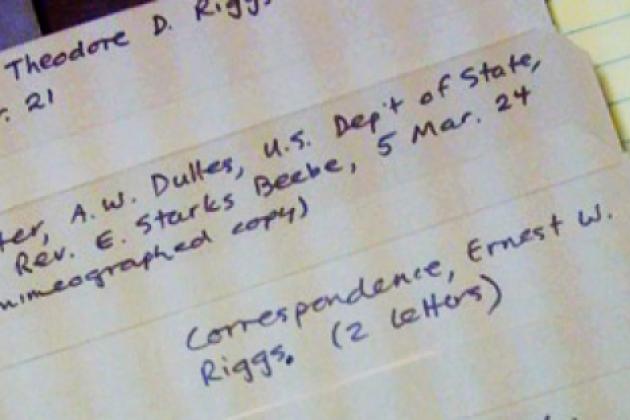 Theodore D. Riggs
r. 21
ter, A.W. Dulles, U.S. Dep't of State,
Rev. E. Starks Beebe, 5 Mar. 24
mimeographed copy)
Correspondence, Ernest W.
Riggs. (2 letters)